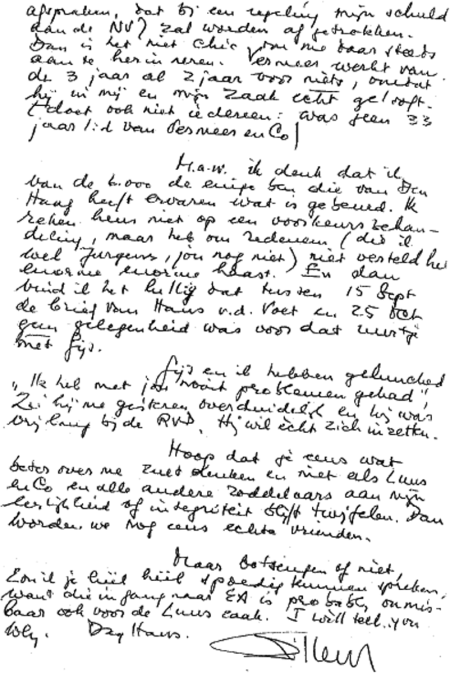 afspraken, dat bij een regeling mijn schuld
aan de NVJ zal worden afgetrokken.
Dan is het niet chic, om me daar steeds
aan te herinneren. Vermeer werkt van
de 3 jaar al 2 jaar voor niets, omdat
hij in mij en mijn zaak echt gelooft.
(doet ook niet iedereen: was geen 33
jaar lid van Vermeer en Co)
M.a.w. ik denk dat ik
van de 6.000 de enige ben die van Den
Haag heeft ervaren wat is gebeurd. Ik
reken heus niet op een voorkeursbehan-
deling, maar heb om redenen (die ik
wel Jurgens, jou nog niet) niet verteld heb
enorme enorme haast. En dan
vind ik het lullig dat tussen 15 Sept
de brief van Hans v.d. Voet en 25 Oct
geen gelegenheid was voor dat uurtje
met Gijs.
Gijs en ik hebben gelunched
"Ik heb met jou nooit problemen gehad"
Zei hij me gisteren overduidelijk en hij was
vrij lang bij de RVD. Hij wil echt zich inzetten.
Hoop dat je eens wat
beter over me zult denken en niet als Luns
en Co en alle andere roddelaars aan mijn
eerlijkheid of integriteit blijft twijfelen. Dan
worden we nog eens echte vrienden.
Maar botsingen of niet,
Zou ik je héél héél spoedig kunnen spreken,
want die ingang naar EA is probably onmis-
baar ook voor de Luns zaak. I will tell you
why. Dag Hans.
Willem